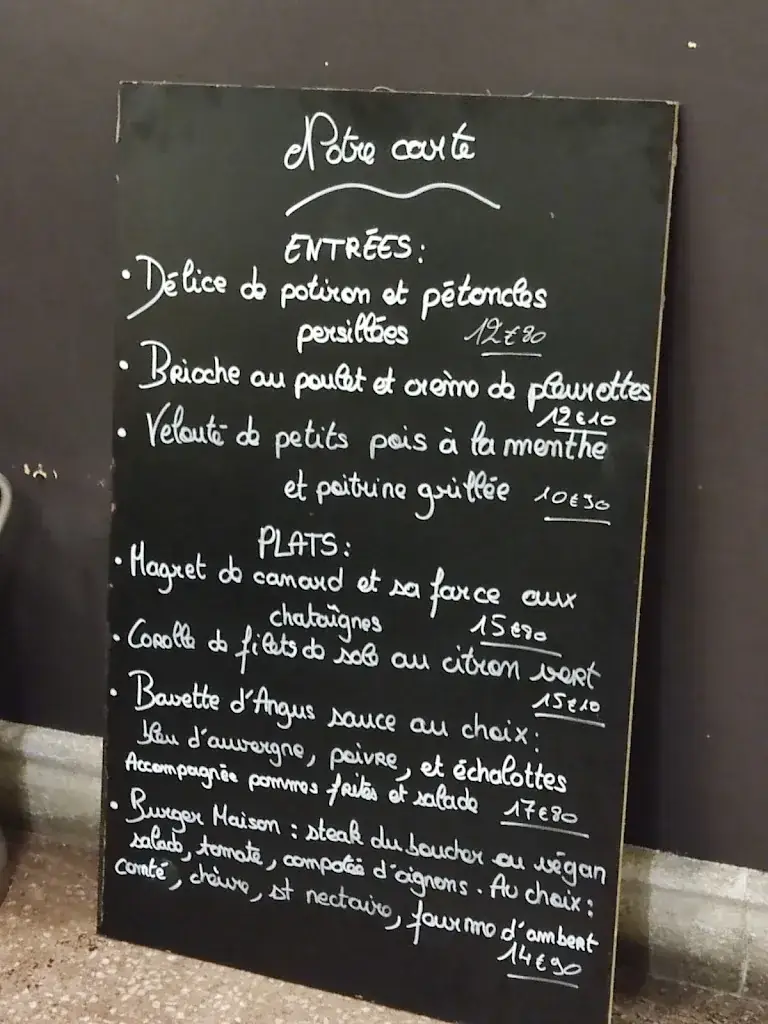 Notre carte
ENTRÉES:
• Délice de potiron et pétoncles
persillées 12€80
• Brioche au poulet et crème de pleurottes
12€10
• Velouté de petits pois à la menthe
et poitrine grillée 10€90
PLATS:
• Magret de canard et sa farce aux
chataîgnes 15€80
• Corolle de filets de sole au citron vert
15€10
• Bavette d'Angus sauce au choix:
bleu d'auvergne, poivre, et échalottes
Accompagnée pommes frites et salade 17€80
• Burger Maison : steak du boucher ou végan
salade, tomate, compotée d'oignons. Au choix:
comté, chèvre, st nectaire, fourme d'ambert
14€90